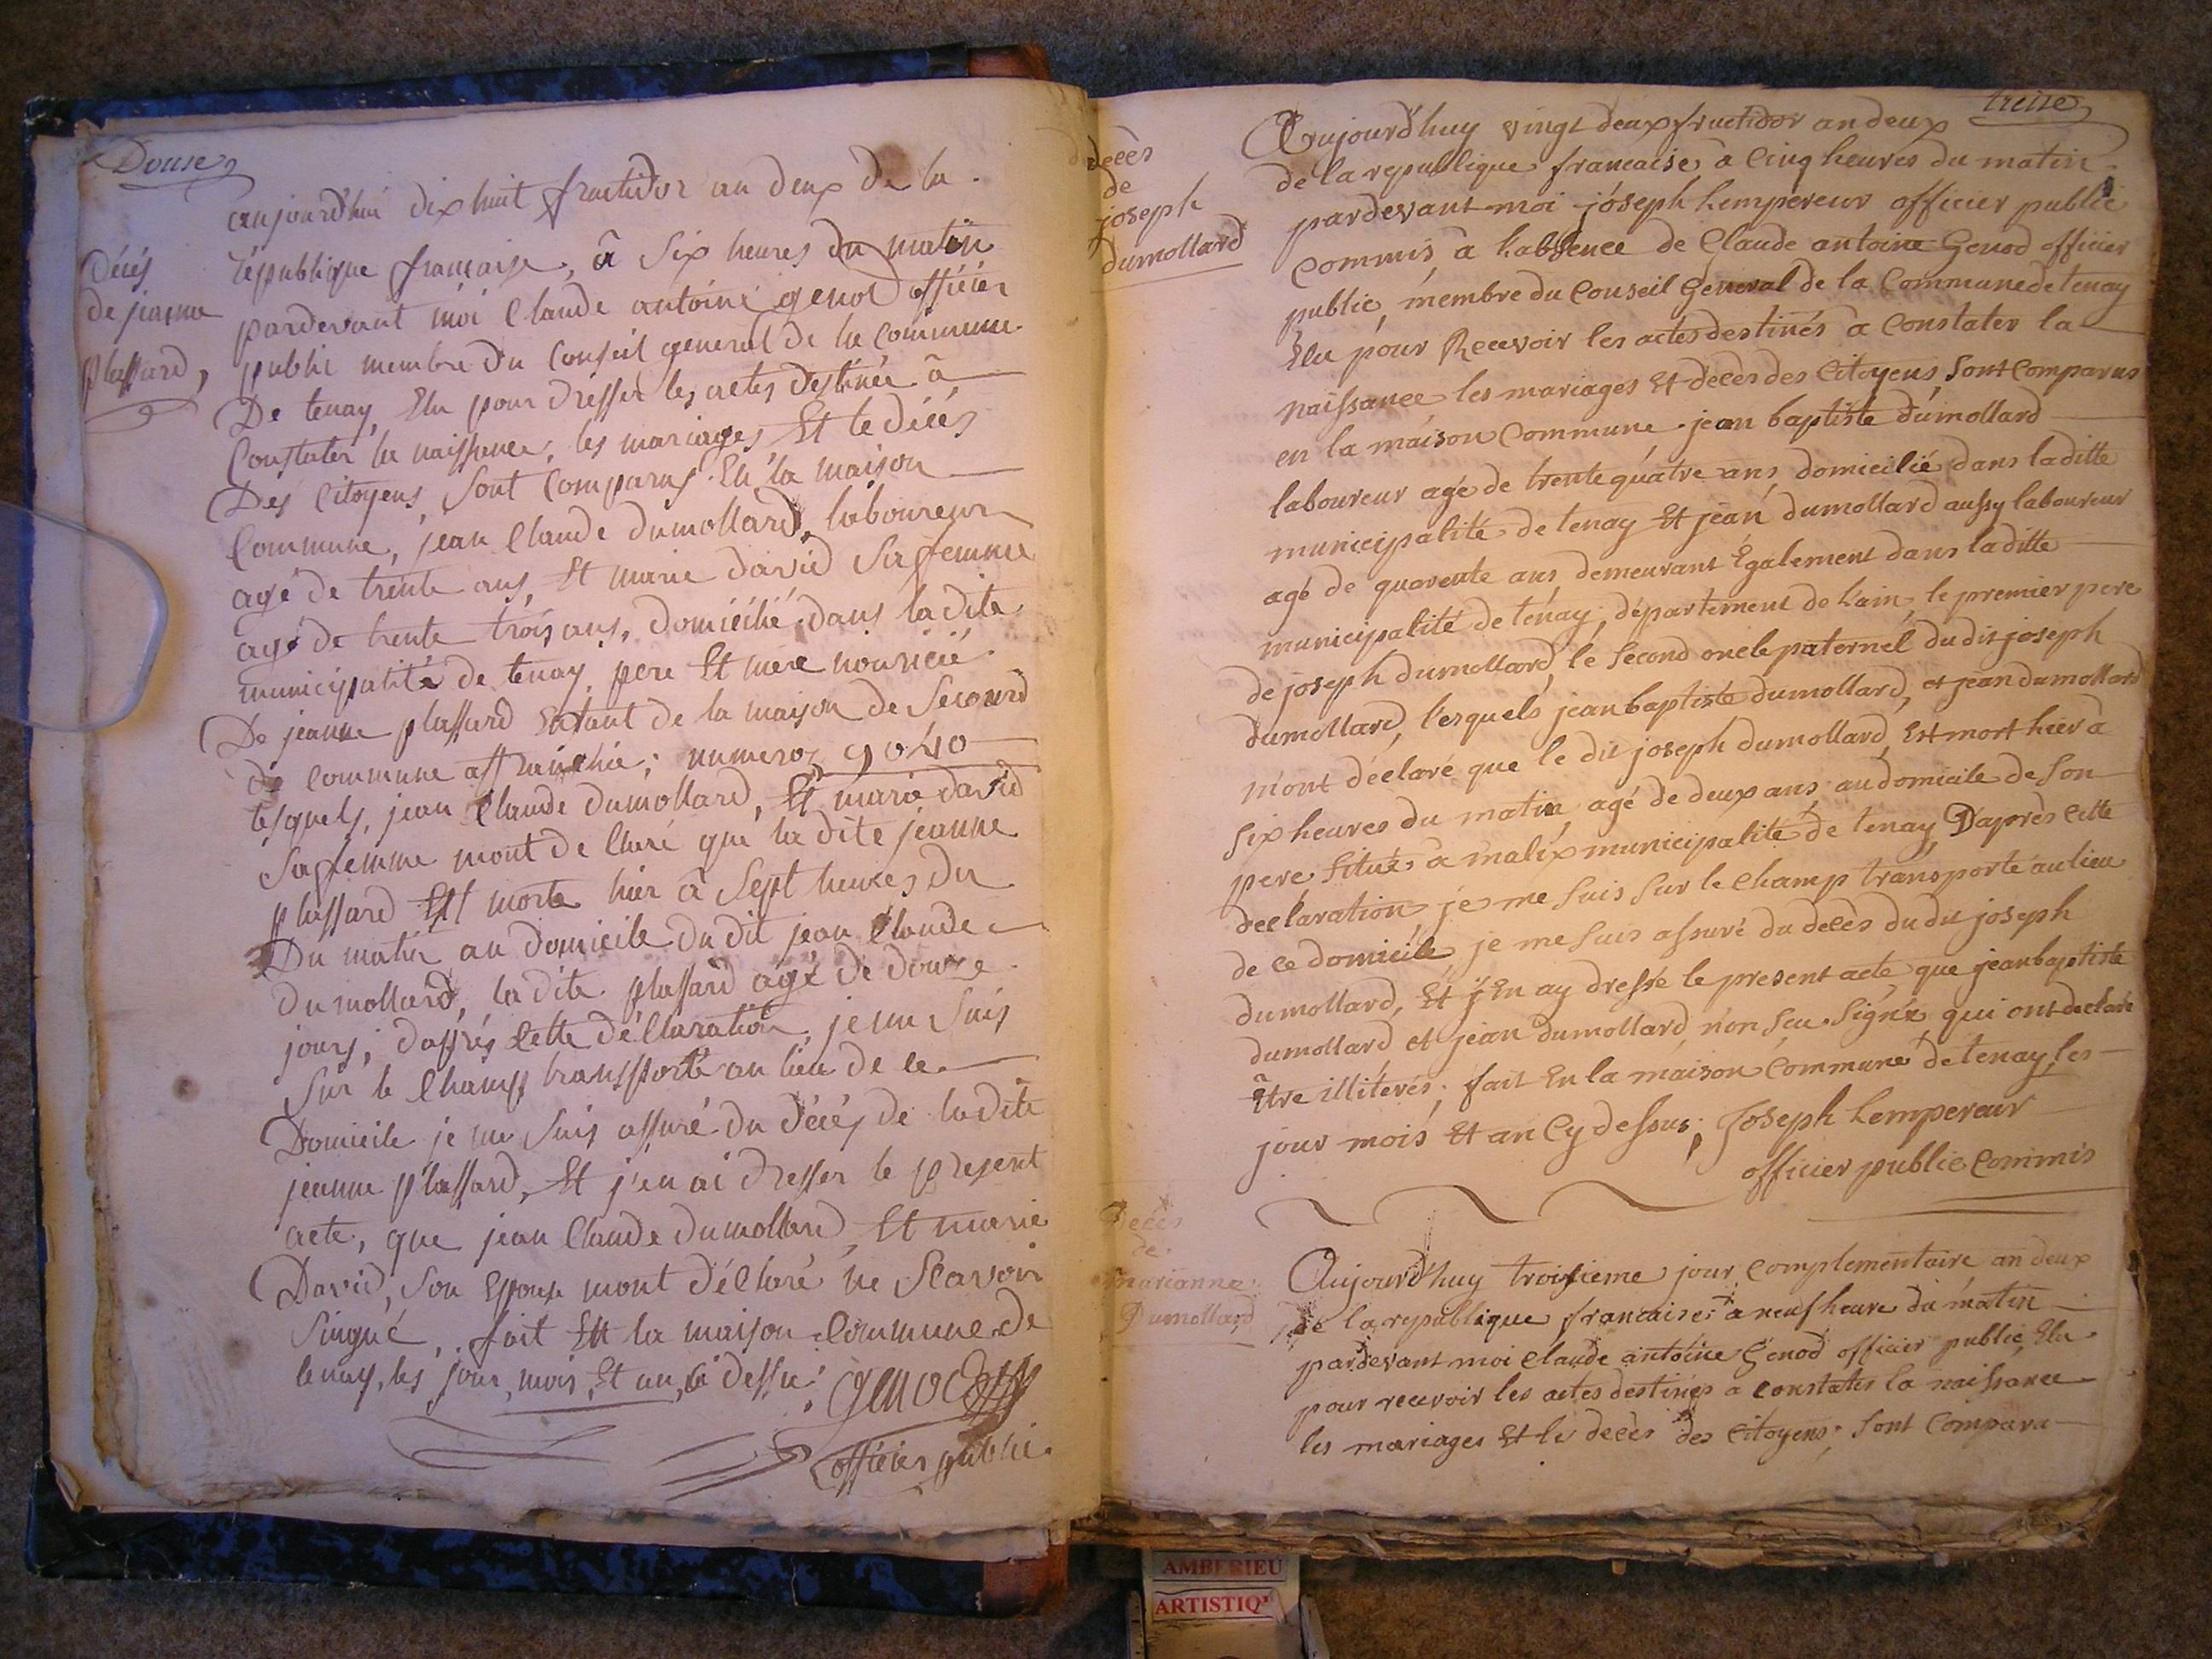 Douse
aujourd'hui dix huit fructidor an deux de la
Décés
de jeanne
plassard,
république françaisse, â six heures du matin
pardevant moi Claude antoine genod officiér
public membre du Conseil general de la commune
De tenay, Elu pour dresser les actes destinée â
Constater la naissence, les mariages, Et le décés
Des Citoyens, sont Comparus En la maison
Commune, jean Claude dumollard, laboureur
agé de trente ans, Et marie david sa femme
agé de trente trois ans, domicilié dans la dite
municipalité de tenay, pere Et mere nouricié
De jeanne plassard Enfant de la maison de Secourd
de commune affranchie; numero 9040
lesquels, jean Claude dumollard, Et marie david
sa femme mont de Claré que la dite jeanne
plassard Est morte hier â Sept heures du
Du matin au domicile du dit jean Claude
dumollard, la dite plassard agé de douze
jours; d'aprés Cette déClaration, je me Suis
Sur le Champ transporté au lieu de ce
Domicile je me Suis assuré du décés de la dite
jeanne plassard, Et j'en ai dresser le present
acte, que jean Claude dumollard, Et marie
David, Son Epouse mont déClaré ne Scavoir
Singné, fait En la maison Commune de
tenay, les jour, mois, Et an, ci dessu; Genod
officier public
treize
decès
de
joseph
dumollard
Aujourd'huy vingt deux fructidor an deux
de la republique francaise, a Cinq heures du matin
pardevant moi joseph Lempereur officier public
Commis a L'absence de Claude antoine Genod officier
public, membre du Conseil General de la Commune de tenay
Elu pour Recevoir les actes destinés a Constater la
naissance les mariages Et decès des Citoyens, Sont Comparus
en la maison Commune jean baptiste dumollard
laboureur agé de trente quatre ans, domicilié dans laditte
municipalité de tenay Et jean dumollard aussy laboureur
agé de quarente ans demeurant Également dans laditte
municipalité de tenay, département de L'ain, le premier pere
de joseph dumollard, le second oncle paternel du dit joseph
dumollard, lesquels jean baptiste dumollard, et jean dumollard
m'ont déclaré que le dit joseph dumollard, Est mort hier a
six heures du matin, agé de deux ans au domicile de son
pere situé a malix municipalité de tenay, D'après Cette
declaration je me suis sur le Champ transporté au lieu
de ce domicile je me suis assuré du decès du dit joseph
dumollard, Et j'En ay dressé le present acte, que jean baptiste
dumollard et jean dumollard n'on scu signér qui ont declaré
être illiterés; fait En la maison Commune de tenay, les
jour mois Et an Cy dessus; Joseph Lempereur
officier public Commis
Decès
de
marianne
Dumollard
Aujourd'huy troisieme jour Complementaire an deux
de la republique francaise a neuf heure du matin
pardevant moi Claude antoine Genod officier public, Elu
pour recevoir les actes destinés a constater la naissance
les mariages Et le decès des Citoyens; sont Comparu
AMBERIEU
ARTISTIQ